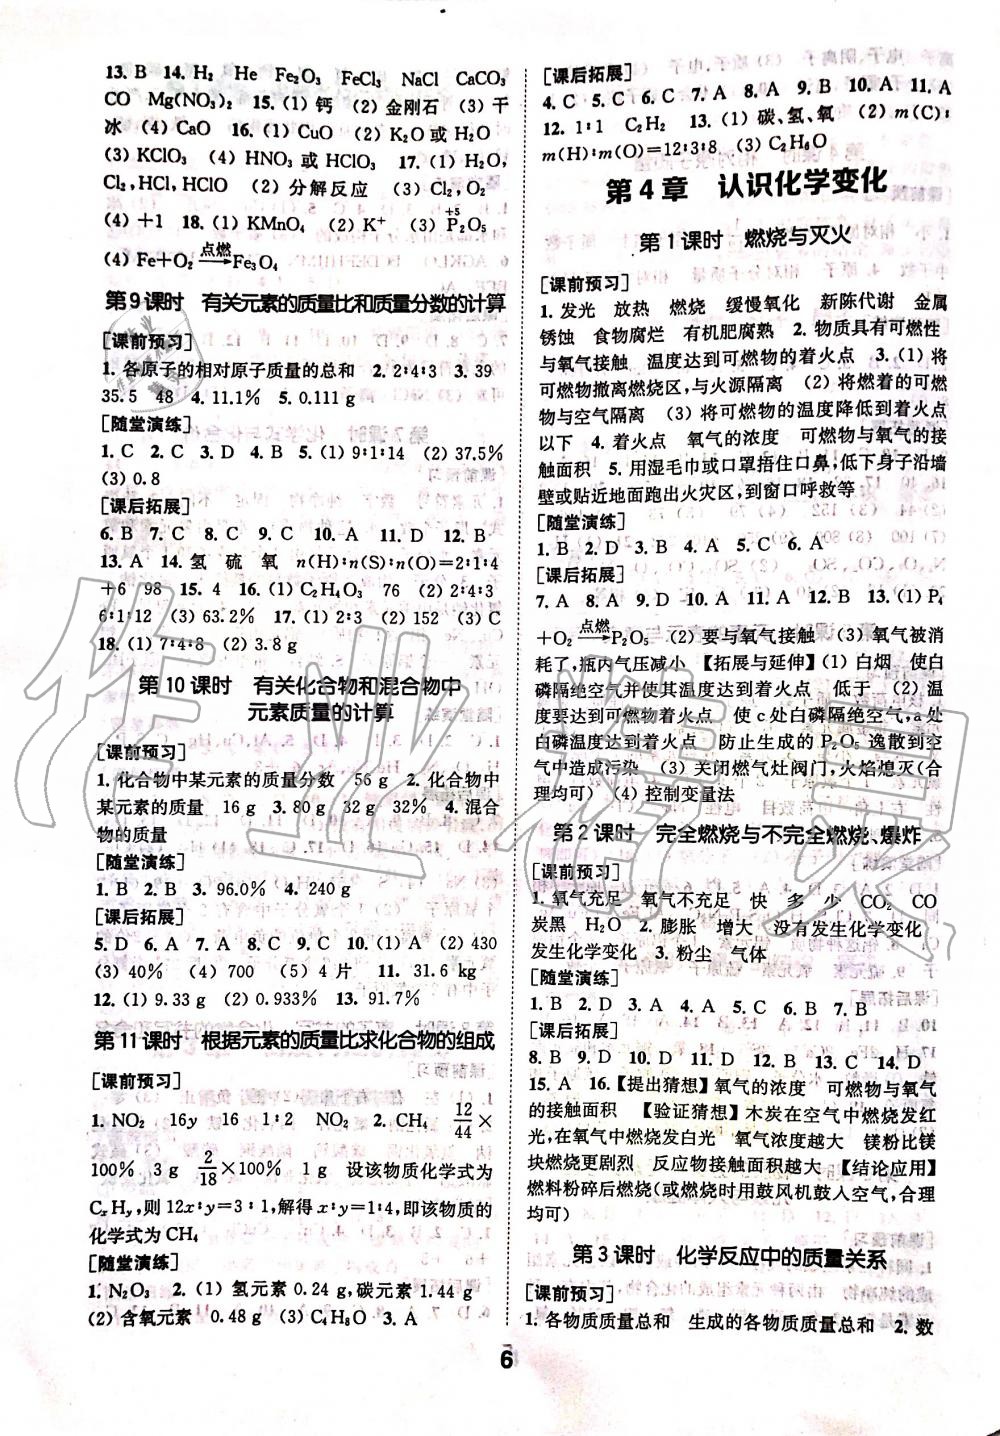 13. B 14. H₂ He Fe₂O₃ FeCl₃ NaCl CaCO₃
CO Mg(NO₃)₂ 15. (1) 钙 (2) 金刚石 (3) 干
冰 (4) CaO 16. (1) CuO (2) K₂O或H₂O
(3) KClO₃ (4) HNO₃或HClO₃ 17. (1) H₂O,
Cl₂,HCl,HClO (2) 分解反应 (3) Cl₂,O₂
(4) +1 18. (1) KMnO₄ (2) K⁺ (3) P₂O₅(+5)
(4) Fe+O₂ —点燃→ Fe₃O₄
第9课时 有关元素的质量比和质量分数的计算
[课前预习]
1. 各原子的相对原子质量的总和 2. 2∶4∶3 3. 39
35.5 48 4. 11.1% 5. 0.111 g
[随堂演练]
1. C 2. C 3. D 4. B 5. (1) 9∶1∶14 (2) 37.5%
(3) 0.8
[课后拓展]
6. B 7. C 8. C 9. C 10. A 11. D 12. B
13. A 14. 氢 硫 氧 n(H)∶n(S)∶n(O)=2∶1∶4
+6 98 15. 4 16. (1) C₂H₄O₃ 76 (2) 2∶4∶3
6∶1∶12 (3) 63.2% 17. (1) 2∶3 (2) 152 (3) C
18. (1) 7∶4∶8 (2) 3.8 g
第10课时 有关化合物和混合物中
元素质量的计算
[课前预习]
1. 化合物中某元素的质量分数 56 g 2. 化合物中
某元素的质量 16 g 3. 80 g 32 g 32% 4. 混合
物的质量
[随堂演练]
1. B 2. B 3. 96.0% 4. 240 g
[课后拓展]
5. D 6. A 7. A 8. C 9. C 10. (1) A (2) 430
(3) 40% (4) 700 (5) 4片 11. 31.6 kg
12. (1) 9.33 g (2) 0.933% 13. 91.7%
第11课时 根据元素的质量比求化合物的组成
[课前预习]
1. NO₂ 16y 16 1∶2 2. CH₄ 12/44×
100% 3 g 2/18×100% 1 g 设该物质化学式为
CₓHᵧ,则12x∶y=3∶1,解得x∶y=1∶4,即该物质的
化学式为CH₄
[随堂演练]
1. N₂O₃ 2. (1) 氢元素0.24 g,碳元素1.44 g
(2) 含氧元素 0.48 g (3) C₄H₈O 3. A
[课后拓展]
4. C 5. C 6. C 7. A 8. A 9. B 10. A 11. A
12. 1∶1 C₂H₂ 13. (1) 碳、氢、氧 (2) m(C)∶
m(H)∶m(O)=12∶3∶8 (3) C₂H₆O
第4章 认识化学变化
第1课时 燃烧与灭火
[课前预习]
1. 发光 放热 燃烧 缓慢氧化 新陈代谢 金属
锈蚀 食物腐烂 有机肥腐熟 2. 物质具有可燃性
与氧气接触 温度达到可燃物的着火点 3. (1) 将
可燃物撤离燃烧区,与火源隔离 (2) 将燃着的可燃
物与空气隔离 (3) 将可燃物的温度降低到着火点
以下 4. 着火点 氧气的浓度 可燃物与氧气的接
触面积 5. 用湿毛巾或口罩捂住口鼻,低下身子沿墙
壁或贴近地面跑出火灾区,到窗口呼救等
[随堂演练]
1. B 2. D 3. B 4. A 5. C 6. A
[课后拓展]
7. A 8. A 9. D 10. A 11. A 12. B 13. (1) P₄
+O₂ —点燃→ P₂O₅ (2) 要与氧气接触 (3) 氧气被消
耗了,瓶内气压减小 【拓展与延伸】(1) 白烟 使白
磷隔绝空气并使其温度达到着火点 低于 (2) 温
度要达到可燃物着火点 使c处白磷隔绝空气,a处
白磷温度达到着火点 防止生成的P₂O₅逸散到空
气中造成污染 (3) 关闭燃气灶阀门,火焰熄灭(合
理均可) (4) 控制变量法
第2课时 完全燃烧与不完全燃烧、爆炸
[课前预习]
1. 氧气充足 氧气不充足 快 多 少 CO₂ CO
炭黑 H₂O 2. 膨胀 增大 没有发生化学变化
发生化学变化 3. 粉尘 气体
[随堂演练]
1. B 2. D 3. A 4. A 5. C 6. B 7. B
[课后拓展]
8. B 9. D 10. D 11. D 12. B 13. C 14. D
15. A 16. 【提出猜想】氧气的浓度 可燃物与氧气
的接触面积 【验证猜想】木炭在空气中燃烧发红
光,在氧气中燃烧发白光 氧气浓度越大 镁粉比镁
块燃烧更剧烈 反应物接触面积越大 【结论应用】
燃料粉碎后燃烧(或燃烧时用鼓风机鼓入空气,合理
均可)
第3课时 化学反应中的质量关系
[课前预习]
1. 各物质质量总和 生成的各物质质量总和 2. 数
6
作业精灵